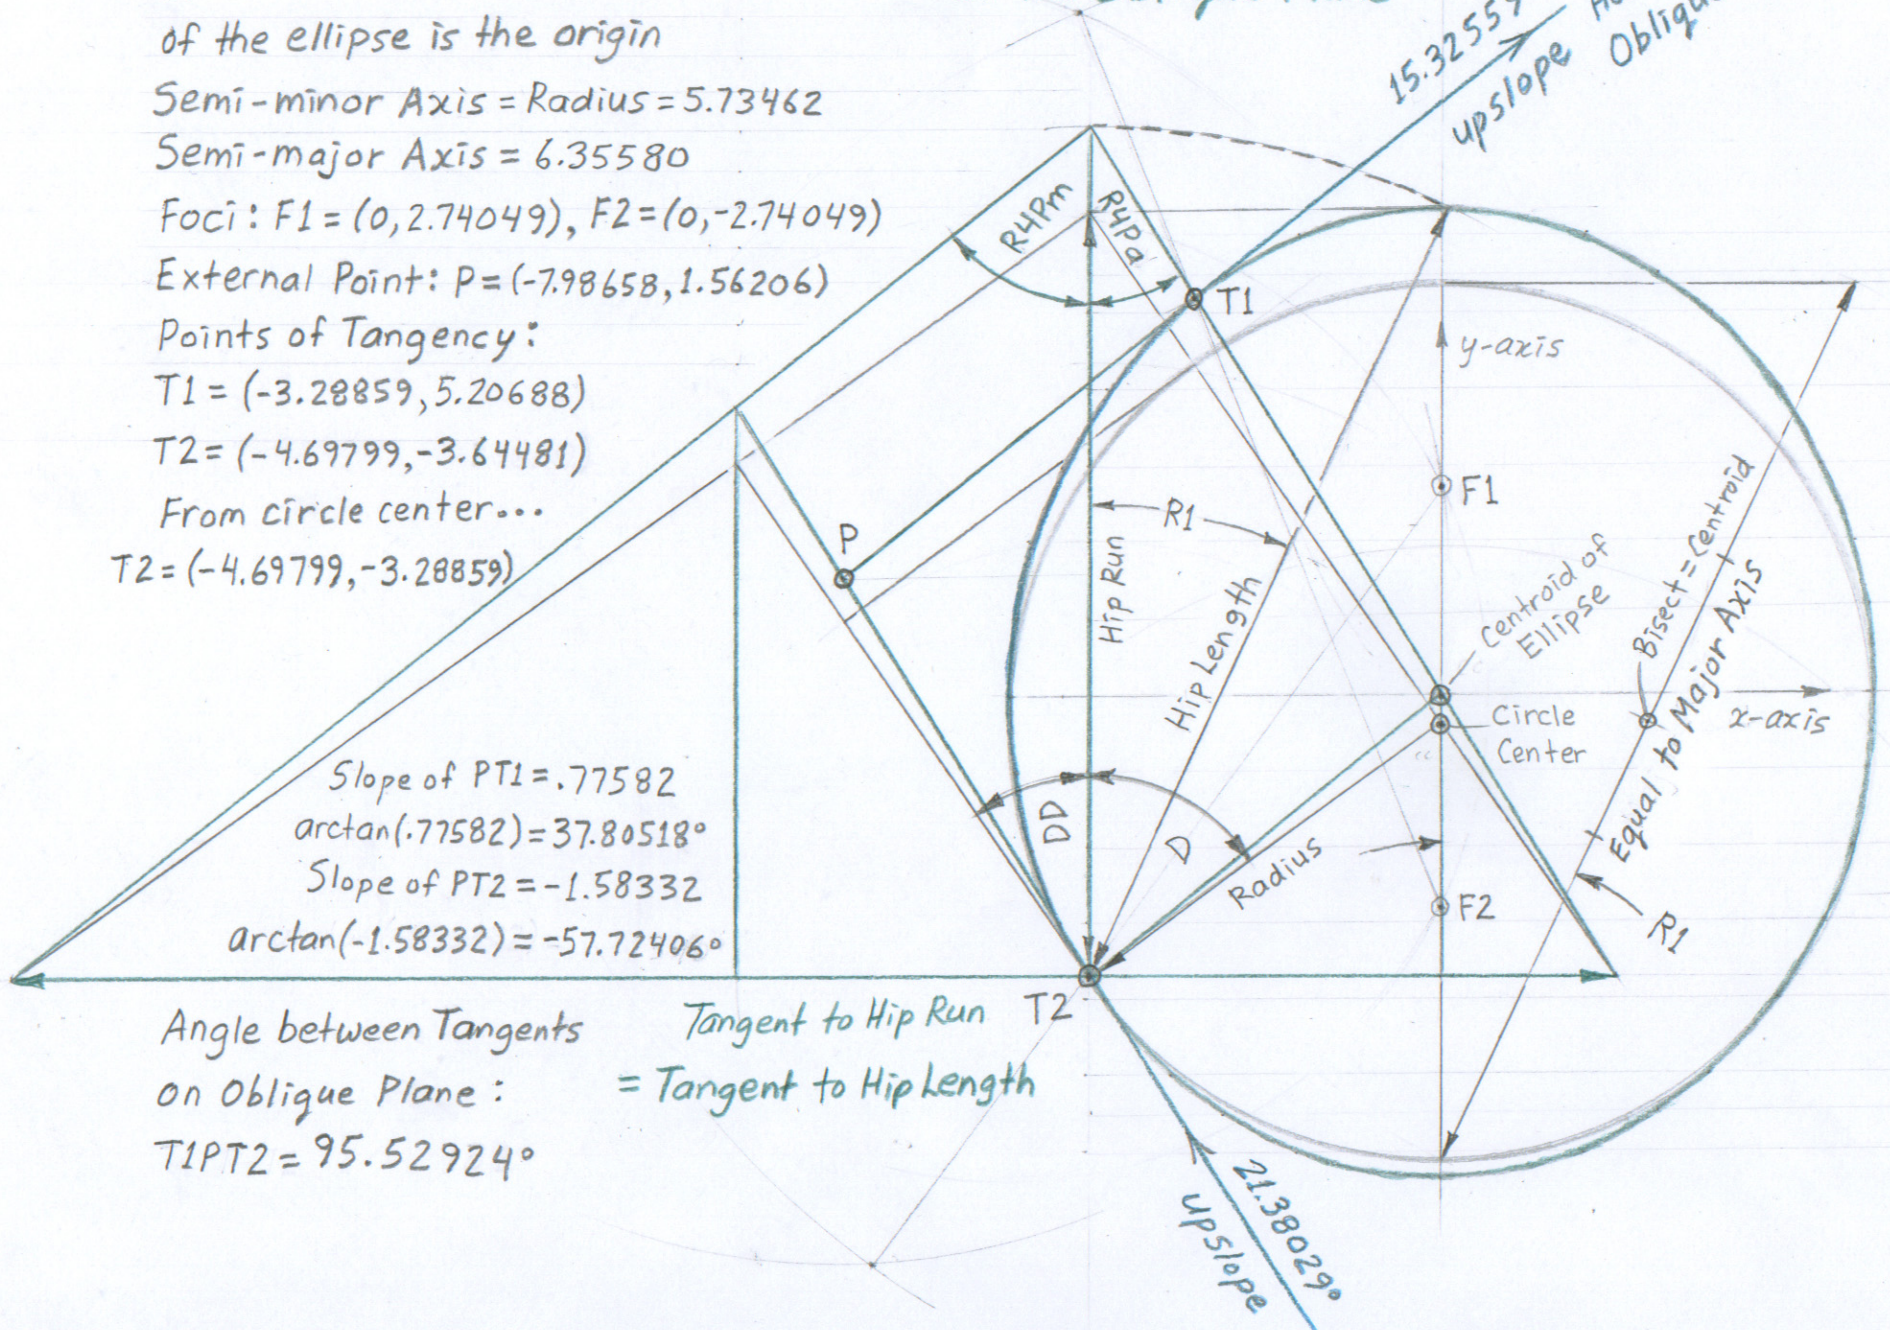 of the ellipse is the origin
Semi-minor Axis = Radius = 5.73462
Semi-major Axis = 6.35580
Foci: F1 = (0, 2.74049), F2 = (0, -2.74049)
External Point: P = (-7.98658, 1.56206)
Points of Tangency:
T1 = (-3.28859, 5.20688)
T2 = (-4.69799, -3.64481)
From circle center...
T2 = (-4.69799, -3.28859)
Slope of PT1 = .77582
arctan(.77582) = 37.80518°
Slope of PT2 = -1.58332
arctan(-1.58332) = -57.72406°
Angle between Tangents
on Oblique Plane:
T1PT2 = 95.52924°
Tangent to Hip Run
= Tangent to Hip Length
15.3255
upslope
R4Pm
R4Pa
T1
y-axis
F1
P
R1
Hip Run
Hip Length
Centroid of
Ellipse
Bisect = Centroid
Equal to Major Axis
Circle
Center
x-axis
DD
D
Radius
F2
R1
T2
21.38029°
upslope